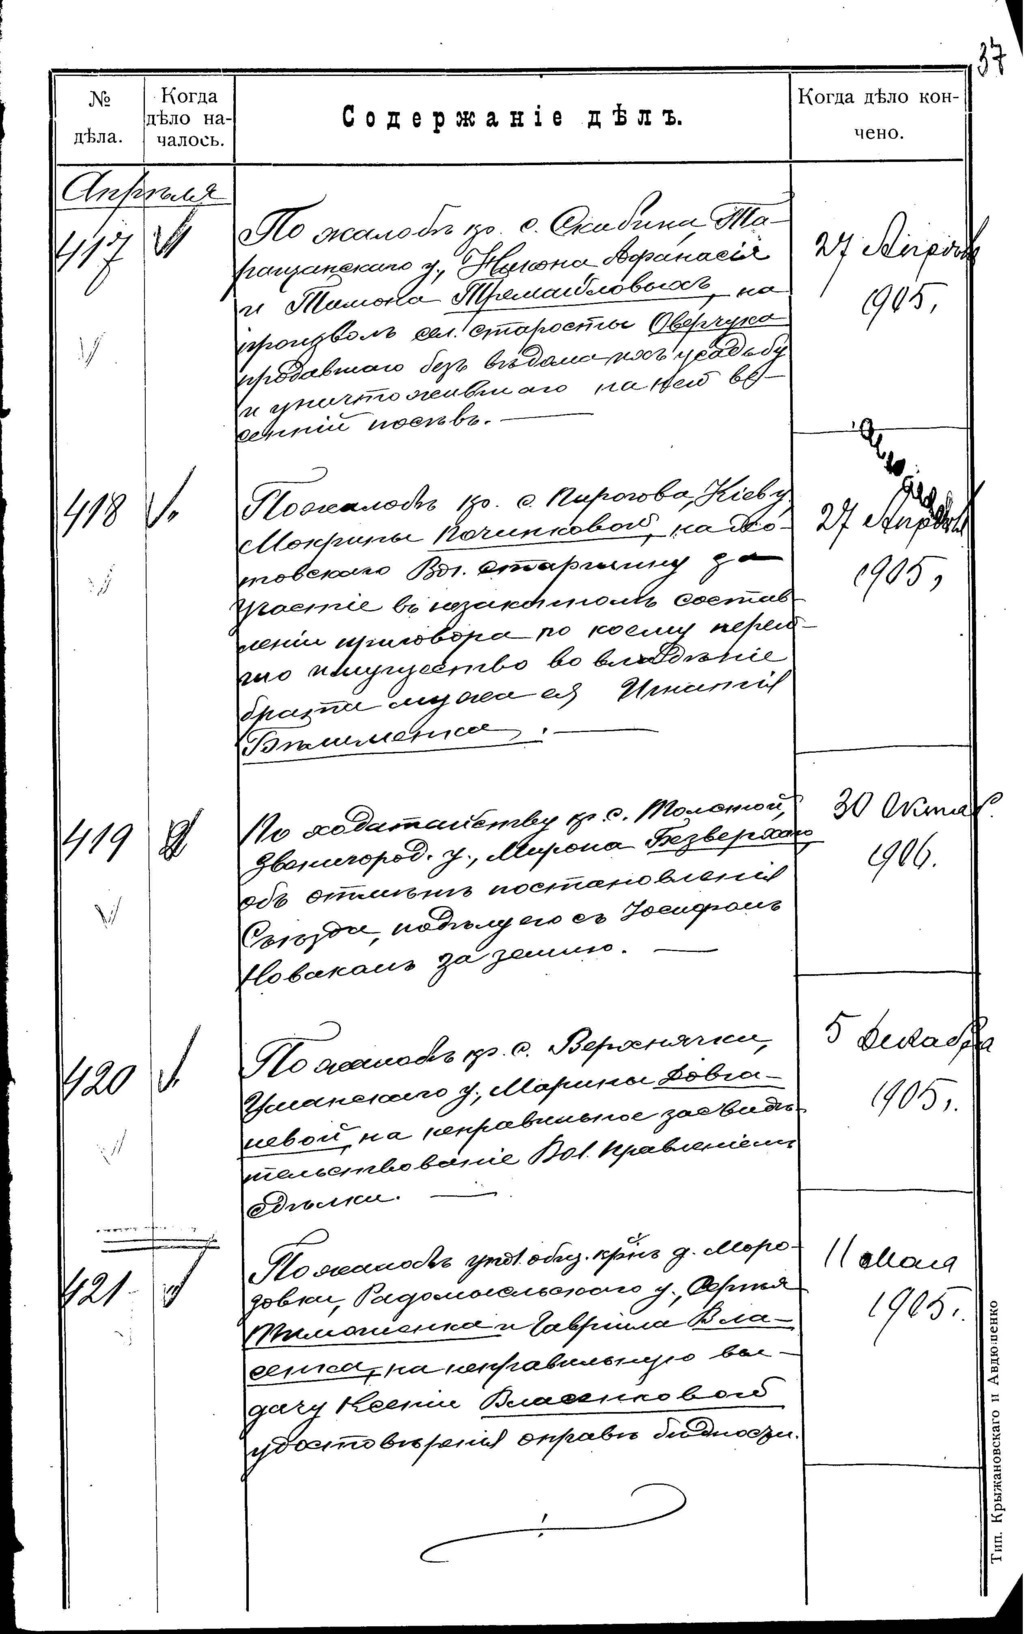 37
№ дѣла.
Когда дѣло началось.
Содержаніе дѣлъ.
Когда дѣло кончено.
Апрѣля
417
По жалобѣ кр. с. Скибина, Та-
ращанскаго у., Никона Афанасія
и Тимона Тремайловыхъ, на
произволъ сел. старосты Оверчука
продавшаго безъ вѣдома ихъ усадьбу
и уничтожившаго на ней ве-
сенній посѣвъ.
27 Апрѣля
1905,
418
По жалобѣ кр. с. Пирогова, Кіев. у.
Мокрины Починковой, на Хо-
товскаго Вол. старшину за
участіе въ незаконномъ состав-
леніи приговора по коему переш-
ло имущество во владѣніе
брата мужа ея Игнатія
27 Апрѣля
1905,
419
По ходатайству кр. с. Толстой,
Звенигород. у., Мирона Безверхаго,
объ отмѣнѣ постановленія
Съѣзда, по дѣлу его съ Іосифомъ
Новакомъ за землю.
30 Октяб.
1906.
420
По жалобѣ кр. с. Верхнячки,
Уманскаго у., Марины Довга-
левой, на неправильное засвидѣ-
тельствованіе Вол. Правленіемъ
сдѣлки.
5 Декабря
1905,.
421
По жалобѣ упол. общ. крнъ д. Моро-
зовки, Радомысльскаго у., Сергѣя
Тимошенка и Гавріила Вла-
сенка, на неправильную вы-
дачу Ксеніи Власенковой
удостовѣренія о правѣ бѣдности.
11 Мая
1905.
Тип. Крыжановскаго и Авдюшенко